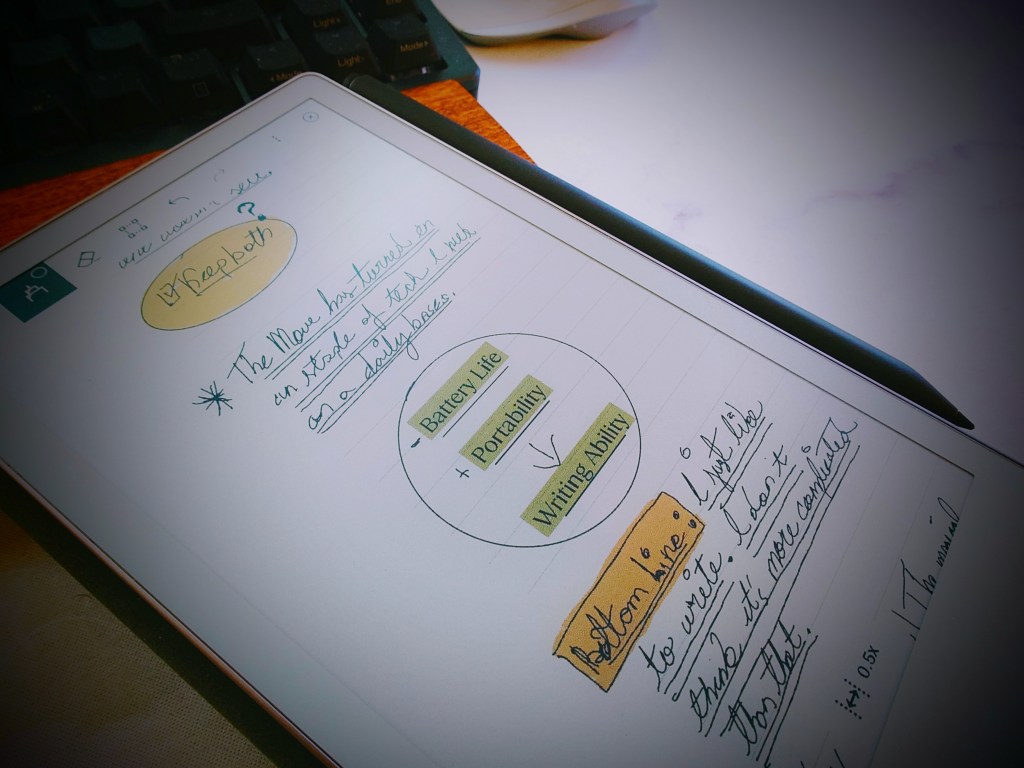 Light+
Mode+
Light-
sell.
?
Keep both
* The Move has turned en
an etade of tech I uses
on a daily bases.
- Battery Life
+ Portability
Writing Ability
Bottom Line: I just like
to write. I don't
think it's more complicated
than that.
0.5x